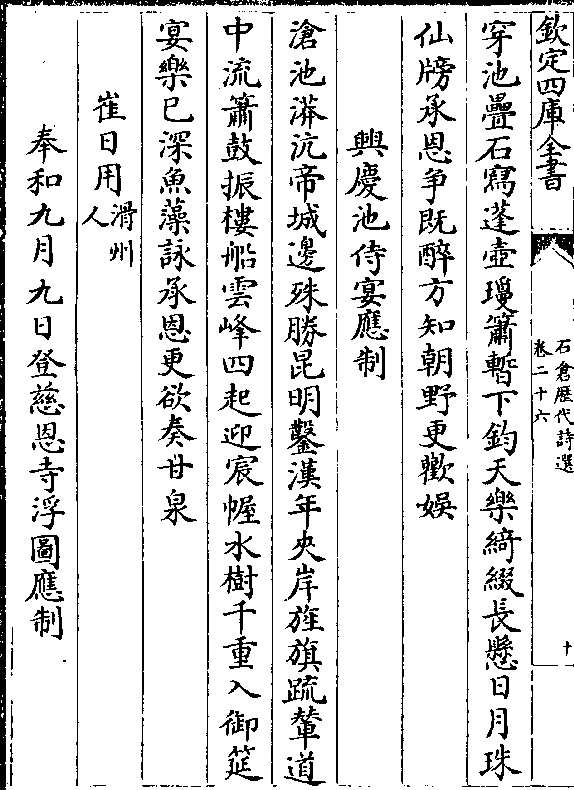 欽定四庫全書
石倉歷代詩選
卷二十六
十
穿池疊石寫蓬壺瓊簫暫下鈞天樂綺綴長懸日月珠
仙牓承恩争既醉方知朝野更歡娛
興慶池侍宴應制
滄池漭沆帝城邊殊勝昆明鑿漢年夾岸旌旗疏輦道
中流簫鼓振樓船雲峰四起迎宸幄水樹千重入御筵
宴樂已深魚藻詠承恩更欲奏甘泉
崔日用滑州人
奉和九月九日登慈恩寺浮圖應制